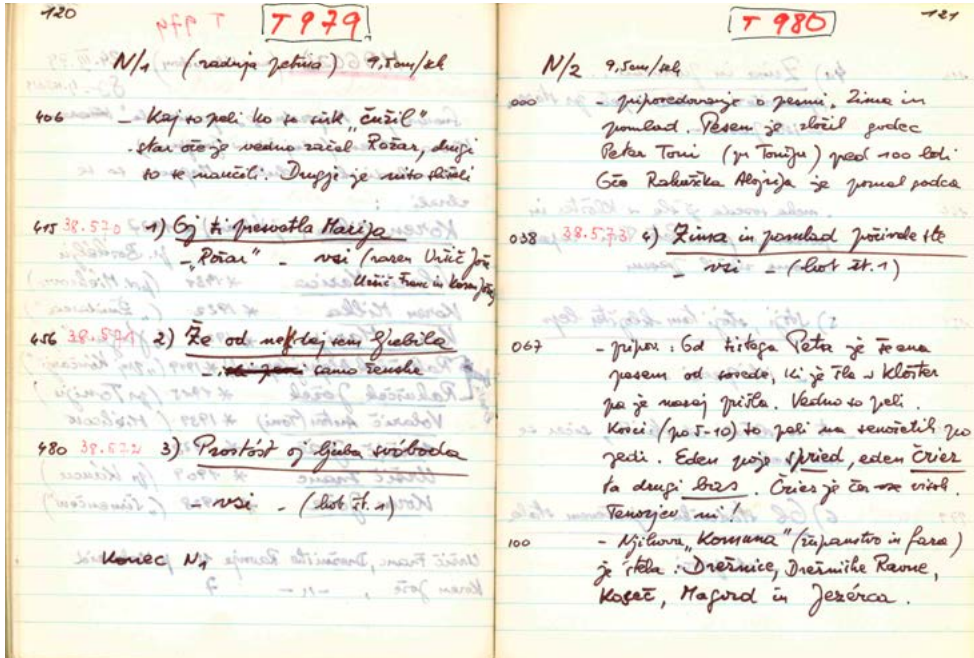 120
T 979
N/1 (zadnja petina) 9,5cm/sek
406 – Kaj so peli ko se sirk „čužil“
star oče je vedno začel Rožar, drugi
so se naučili. Drugje je niso slišali
415 38.570 1) Oj ti presvetla Marija
– „Rožar“ – vsi (razen Uršič Jože
Uršič Franc in Koren Jožef)
456 38.571 2) Že od nekdaj sem ljubila
– samo ženske
480 38.572 3) Prostóst oj ljuba svóboda
– vsi – (kot št. 1)
Konec N1
121
T 980
N/2 9,5cm/sek
000 – pripovedovanje o pesmi, Zima in
pomlad. Pesem je zložil godec
Peter Toni (pr Toniju) pred 100 leti
Oče Rakušćka Alojzija je poznal godca
038 38.573 4) Zima in pomlad
– vsi – (kot št. 1)
067 – pripov.: Od tistega Petra je že ena
pesem od sosede, ki je šla v Klošter
pa je nazaj prišla. Vedno so peli.
Kosci (po 5-10) so peli na senožetih po
jedi. Eden poje sprìed, eden čriez
ta drugi bas. Čriez je čez visok.
Tenorjev ni!
100 – Njihova „Komuna“ (županstvo in fara)
je štela: Drežnice, Drežniške Ravne,
Koseč, Magozd in Jezérca.